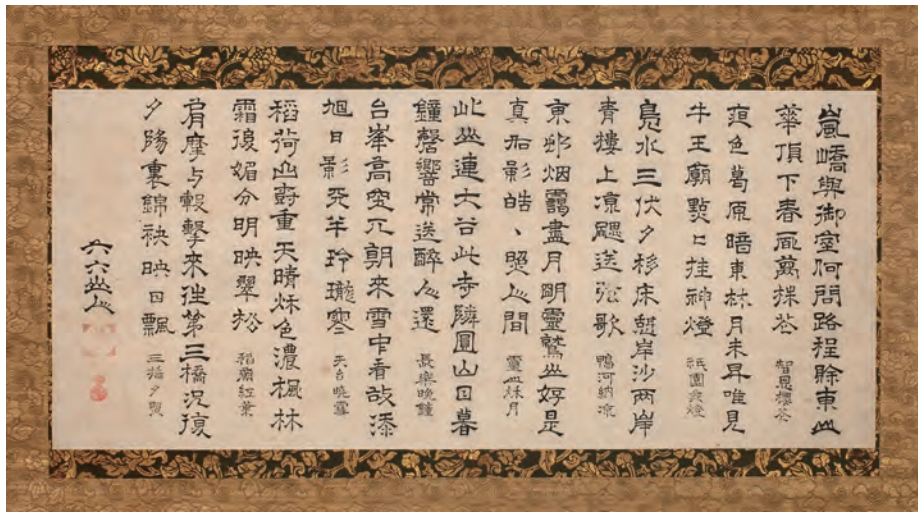 嵐嶠與御室何問路程賒東山
華頂下春風萬株花 智恩櫻花
夜色葛原暗東林月未昇唯見
牛王廟點〻挂神燈 祇園夜燈
鳧水三伏夕移床憩岸沙两岸
青樓上凉飔送弦歌 鴨河納凉
東郊烟靄盡月明靈鷲山好是
真如影皓〻照人間 靈山秋月
此山連大谷此寺隣圓山日暮
鐘磬響常送醉人還 長樂晚鐘
台峯高突兀朝來雪中看添
旭日影半玲瓏寒 天台曉雪
稻荷山重天晴秋色濃楓林
霜後媚分明映翠松 稻荷紅葉
肩摩与轂擊來徃第三橋況復
夕陽裏錦袂映日飄 三橋夕照
六六山人